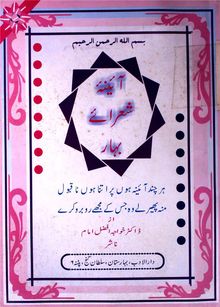 بسم اللہ الرحمن الرحیم
آئینۂ
شعرائے
بہار
ہر چند آئینہ ہوں پر اتنا ہوں ناقبول
منہ پھیر لے وہ جس کے مجھے روبرو کرے
از
ڈاکٹر خواجہ افضل امام
ناشر
دارالادب، بہارستان، سلطان گنج، پٹنہ ۶